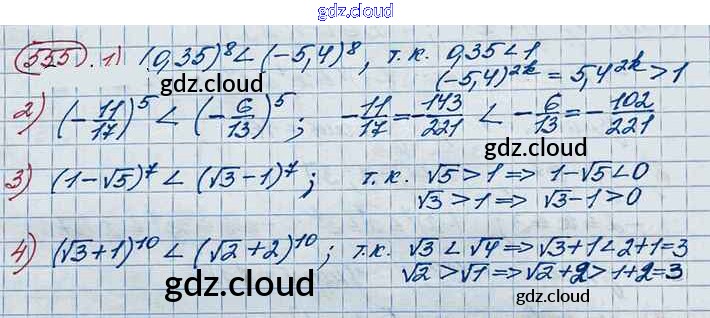 gdz.cloud
gdz.cloud
555. 1) (0,35)⁸ < (-5,4)⁸, т.к. 0,35 < 1
(-5,4)²ᵏ = 5,4²ᵏ > 1
gdz.cloud
2) (-11/17)⁵ < (-6/13)⁵; -11/17 = -143/221 < -6/13 = -102/221
gdz.cloud
3) (1-√5)⁷ < (√3-1)⁷; т.к. √5 > 1 => 1-√5 < 0
√3 > 1 => √3-1 > 0
gdz.cloud
4) (√3+1)¹⁰ < (√2+2)¹⁰; т.к. √3 < √4 => √3+1 < 2+1=3
√2 > √1 => √2+2 > 1+2=3
gdz.cloud
gdz.cloud